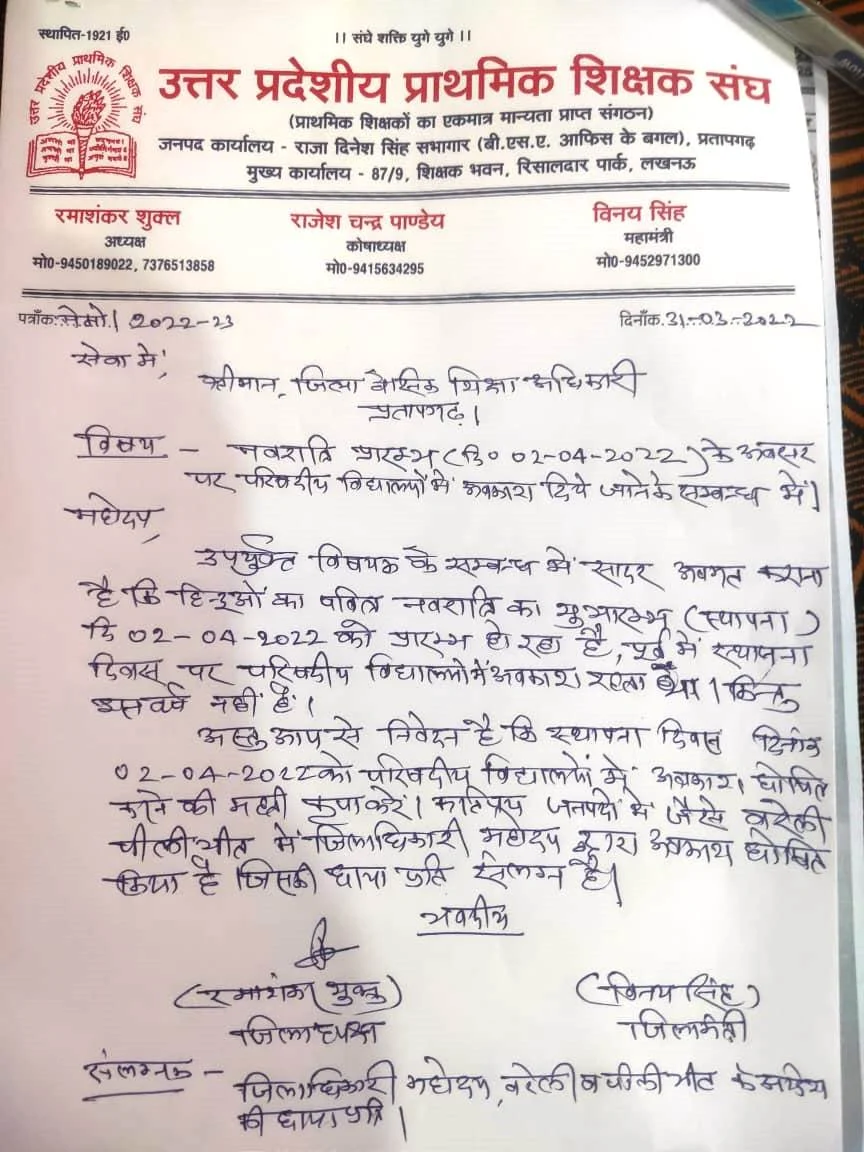 स्थापित-1921 ई0
।। संघे शक्ति युगे युगे ।।
उत्तर प्रदेशीय प्राथमिक शिक्षक संघ
उत्तर प्रदेशीय प्राथमिक शिक्षक संघ
(प्राथमिक शिक्षकों का एकमात्र मान्यता प्राप्त संगठन)
जनपद कार्यालय - राजा दिनेश सिंह सभागार (बी.एस.ए. आफिस के बगल), प्रतापगढ़
मुख्य कार्यालय - 87/9, शिक्षक भवन, रिसालदार पार्क, लखनऊ
रमाशंकर शुक्ल
अध्यक्ष
मो0-9450189022, 7376513858
राजेश चन्द्र पाण्डेय
कोषाध्यक्ष
मो0-9415634295
विनय सिंह
महामंत्री
मो0-9452971300
पत्राँक. मेमो/ 2022-23
दिनाँक. 31-03-2022
सेवा में,
श्रीमान, जिला बेसिक शिक्षा अधिकारी
प्रतापगढ़।
विषय - नवरात्रि प्रारम्भ (दि० 02-04-2022) के अवसर
पर परिषदीय विद्यालयों में अवकाश दिये जाने के सम्बन्ध में।
महोदय,
उपर्युक्त विषयक के सम्बन्ध में सादर अवगत कराना
है कि हिन्दुओं का पवित्र नवरात्रि का शुभारम्भ (स्थापना)
दि 02-04-2022 को प्रारम्भ हो रहा है, पूर्व में स्थापना
दिवस पर परिषदीय विद्यालयों में अवकाश रहता था। किन्तु
इस वर्ष नहीं है।
अस्तु आप से निवेदन है कि स्थापना दिवस दिनांक
02-04-2022 को परिषदीय विद्यालयों में अवकाश घोषित
करने की महती कृपा करें। कतिपय जनपदों में जैसे बरेली
पीलीभीत में जिलाधिकारी महोदय द्वारा अवकाश घोषित
किया है। जिसकी छाया प्रति संलग्न है।
भवदीय
(रमाशंकर शुक्ल)
जिलाध्यक्ष
(विनय सिंह)
जिलामंत्री
संलग्नक - जिलाधिकारी महोदय, बरेली व पीलीभीत के आदेश
की छाया प्रति।